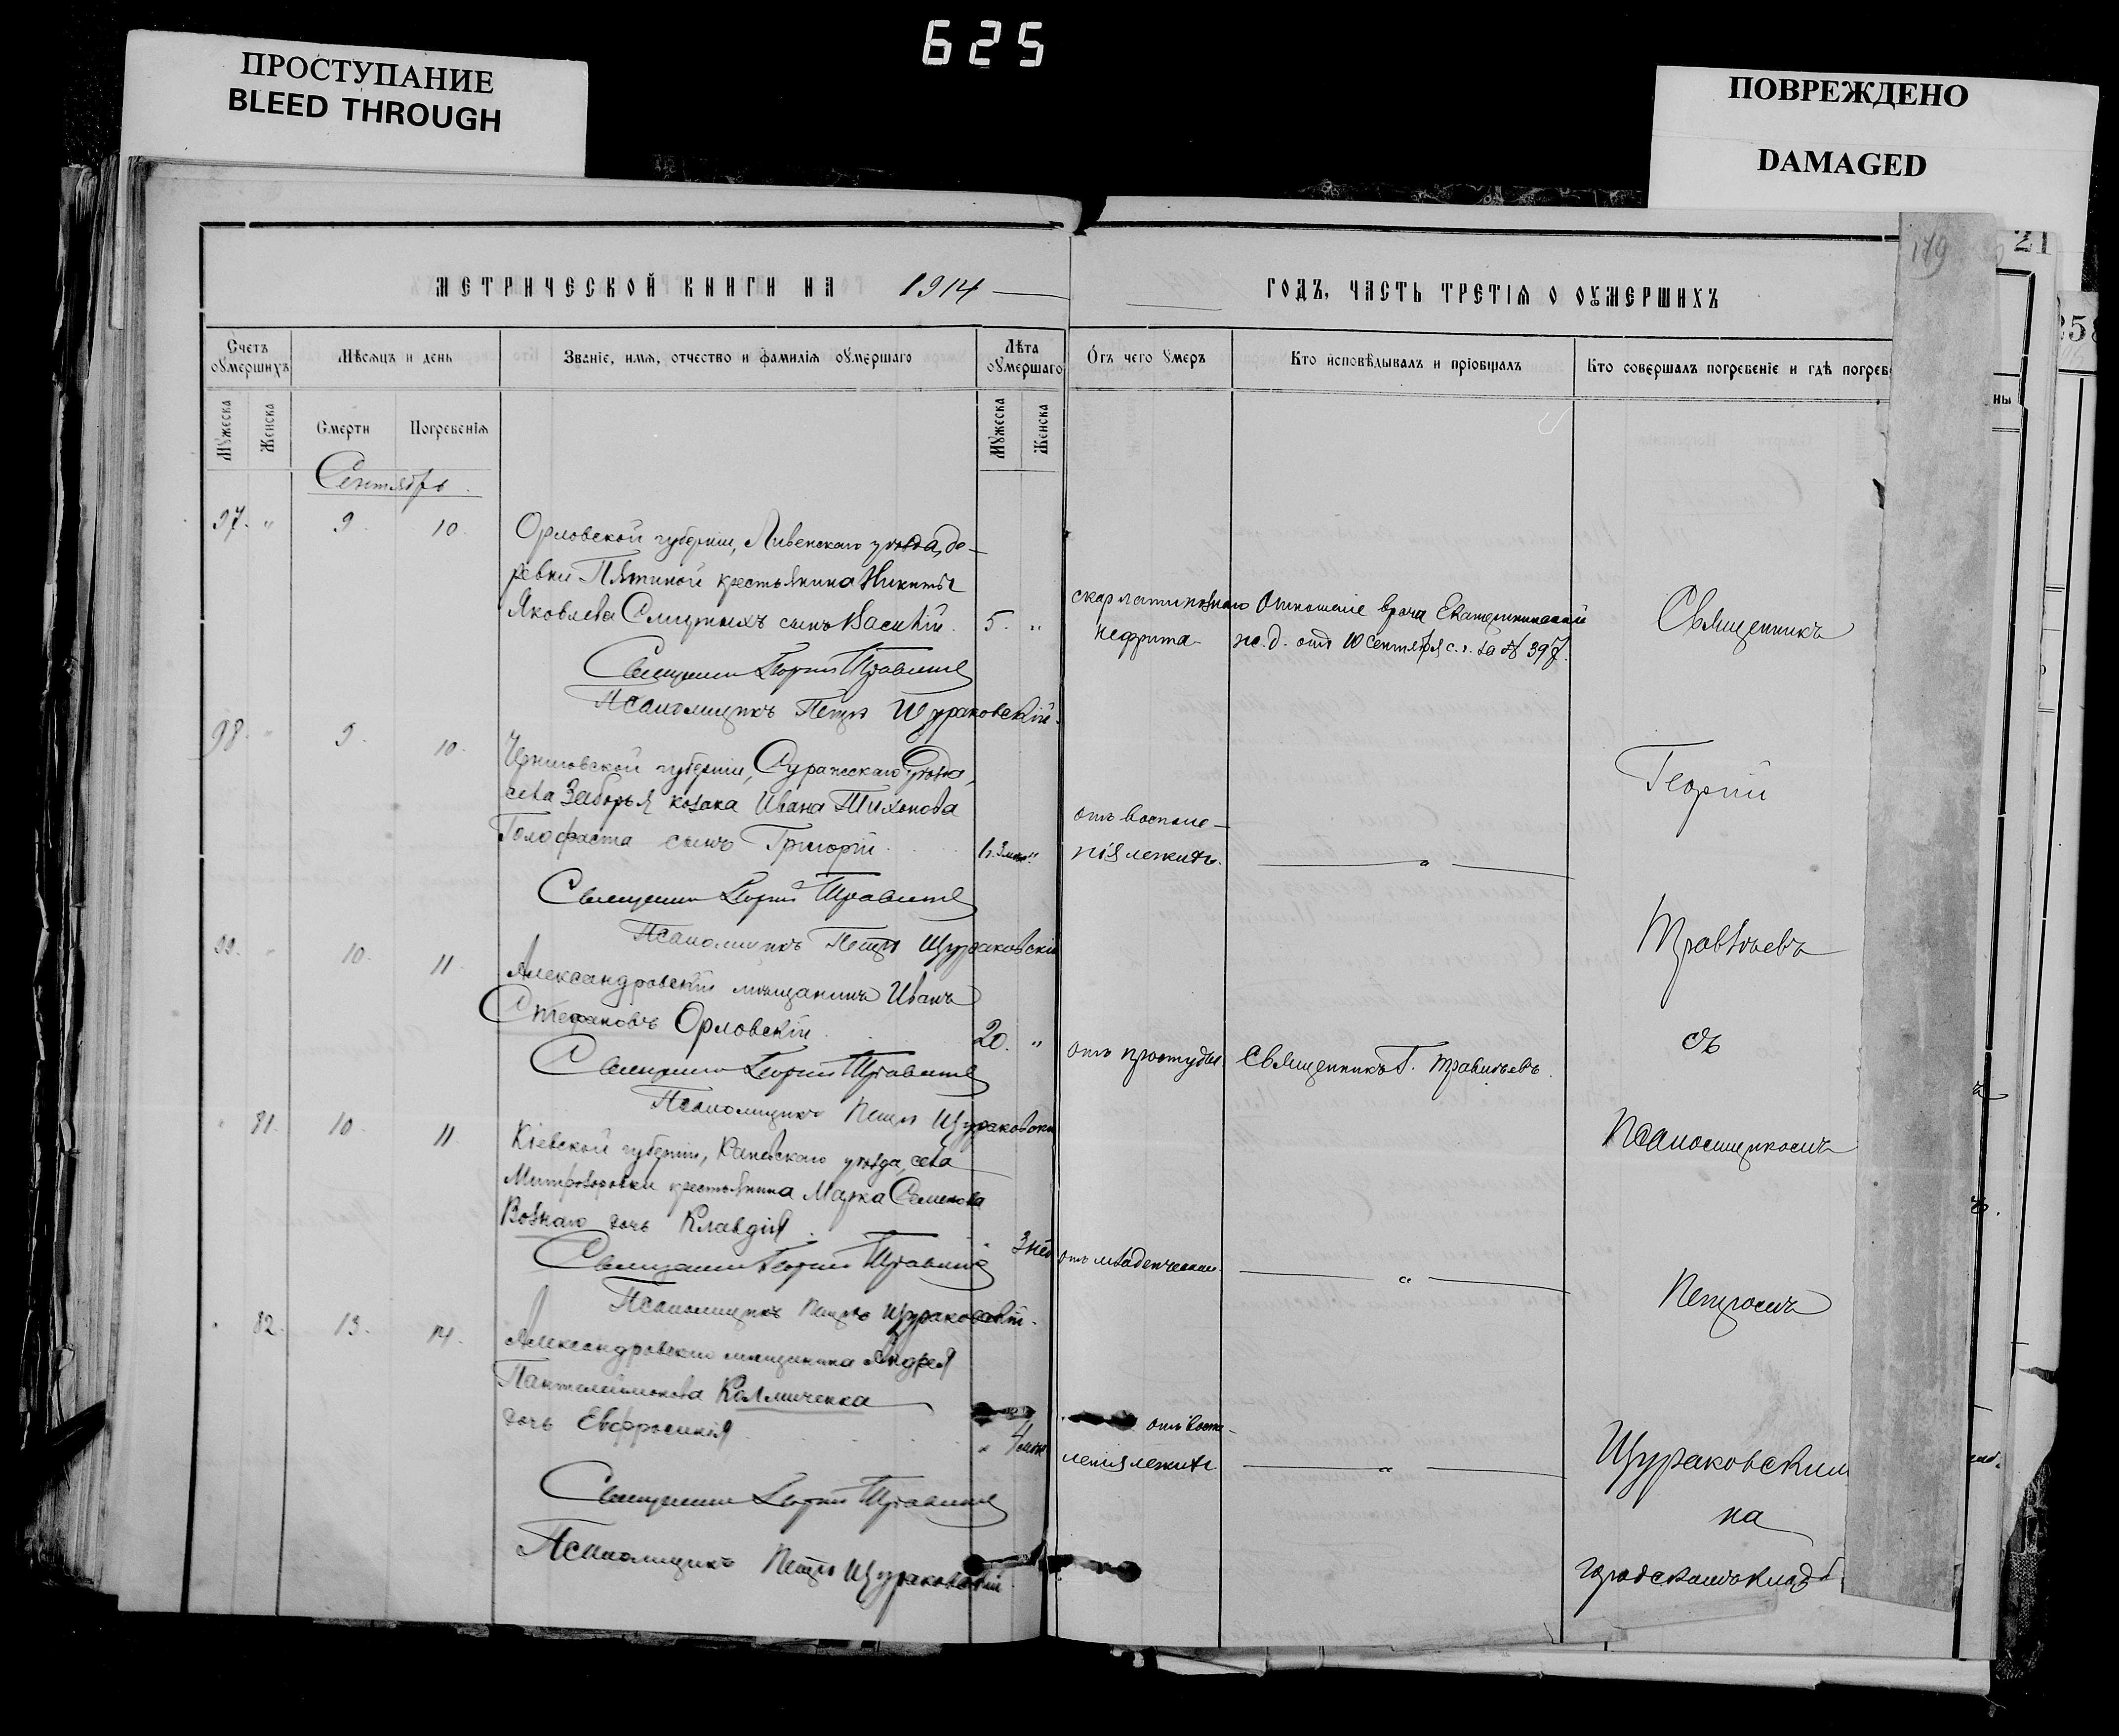 625
ПРОСТУПАНИЕ
BLEED THROUGH
ПОВРЕЖДЕНО
DAMAGED
179
21
258
МЕТРИЧЕСКОЙ КНИГИ НА 1914
ГОДЪ, ЧАСТЬ ТРЕТІЯ О ОУМЕРШИХЪ
Счетъ оумершихъ
Мѣсяцъ и день
Званіе, имя, отчество и фамилія оумершаго
Лѣта оумершаго
Отъ чего умеръ
Кто исповѣдывалъ и пріобщалъ
Кто совершалъ погребеніе и гдѣ погреб
ны
Мужеска
Женска
Смерти
Погребенія
Мужеска
Женска
Сентябрь.
97. " 9. 10.
Орловской губерніи, Ливенскаго уѣзда, де-
ревни Пятиной крестьянина Никиты
Яковлева Смирныхъ сынъ Василій. 5. "
скарлатинознаго
нефрита
Отношеніе врача
отъ 10 сентября с. г. за № 397.
Священникъ Георгій Травлѣевъ
Псаломщикъ Петръ Щураковскій.
98. " 9. 10.
Черниговской губерніи, Суражскаго уѣзда,
села Заборья козака Ивана Тихонова
Голофаста сынъ Григорій
отъ воспале-
нія легкихъ.
"
Священникъ Георгій Травлѣевъ
Псаломщикъ Петръ Щураковскій
99. " 10. 11
Александровскій мѣщанинъ Иванъ
Стефановъ Орловскій. 20. "
отъ простуды.
Священникъ Г. Травлѣевъ.
Священникъ Георгій Травлѣевъ
Псаломщикъ Петръ Щураковскій
" 81. 10. 11
Кіевской губерніи, Каневскаго уѣзда, села
крестьянина Марка Семенова
Вознаго дочь Клавдія. " 3 нед
отъ младенческой.
"
Священникъ Георгій Травлѣевъ
Псаломщикъ Петръ Щураковскій.
" 82. 13. 14.
Александровскаго мѣщанина Андрея
Пантелеймонова Калмиченка
дочь Евфросинія
" 4 мѣс
отъ воспа-
ленія легкихъ
"
Священникъ Георгій Травлѣевъ
Псаломщикъ Петръ Щураковскій
Священникъ
Георгій
Травлѣевъ
съ
Псаломщикомъ
Петромъ
Щураковским
на
городскомъ кладб